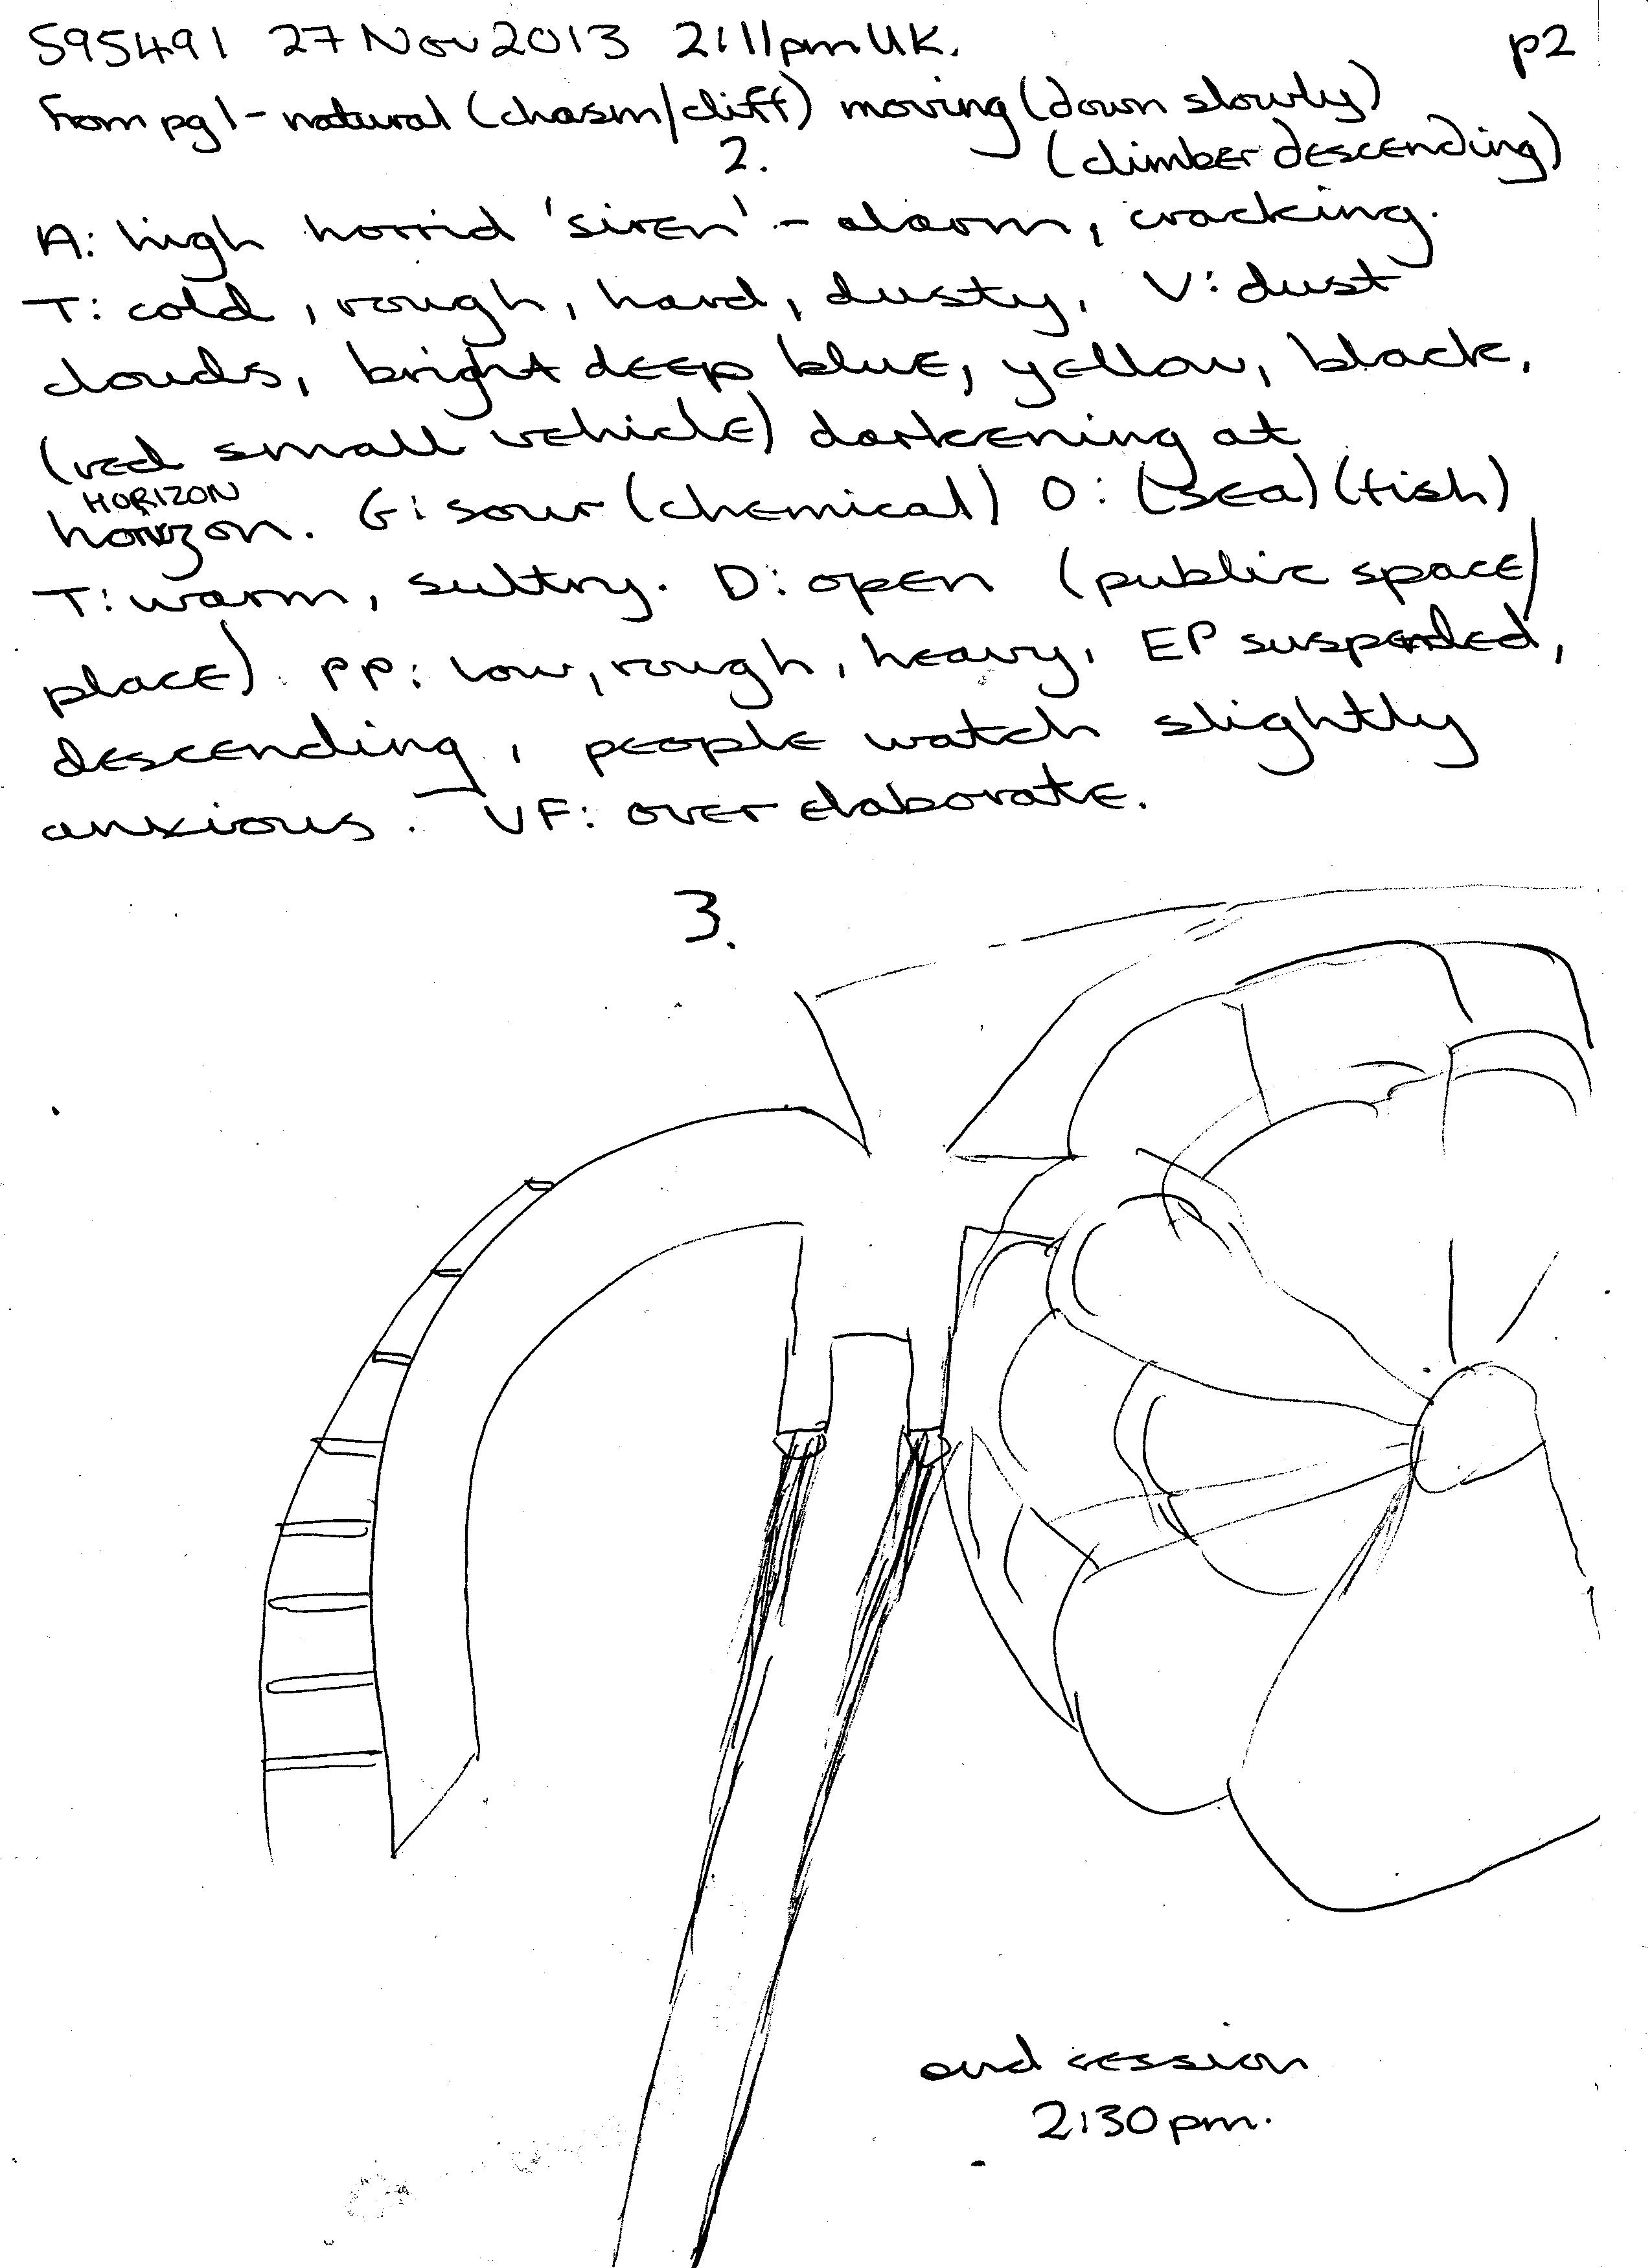 595491 27 Nov 2013 2:11pm UK. p2
From pg1 - natural (chasm/cliff) moving (down slowly)
2. (climber descending)
A: high horrid 'siren' - alarm, cracking.
T: cold, rough, hard, dusty. V: dust
clouds, bright deep blue, yellow, black,
(red small vehicle) darkening at
HORIZON
horizon. G: sour (chemical) O: (sea) (fish)
T: warm, sultry. D: open (public space/
place) PP: low, rough, heavy, EP suspended,
descending, people watch slightly
anxious. VF: over elaborate.
3.
end session
2:30pm.